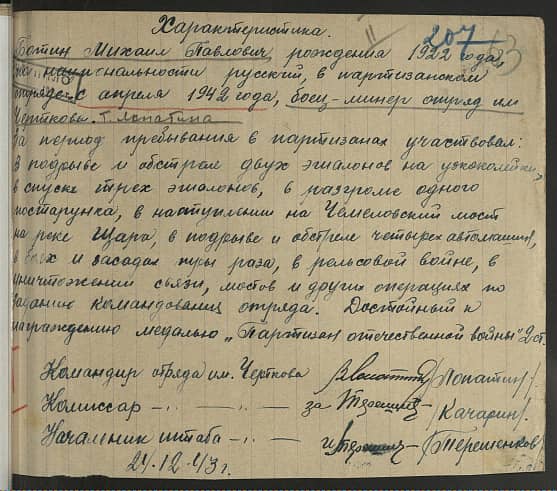 Характеристика.
207
Ботин Михаил Павлович, рождения 1922 года,
национальности русский, в партизанском
отряде с апреля 1942 года, боец-минер отряд им
Черткова. т. Лопатина
За период пребывания в партизанах участвовал:
В подрыве и обстреле двух эшалонов на узкоколейке,
в спуске трех эшалонов, в разгроме одного
постарунка, в наступлении на Чемеловский мост
на реке Щара, в подрыве и обстреле четырех автомашин,
в боях и засадах три раза, в рельсовой войне, в
уничтожении связи, мостов и других операциях по
заданию командования отряда. Достойный к
награждению медалью „Партизан отечественной войны" 2 ст.
Командир отряда им. Черткова /Лопатин/
Комиссар -..- -..- за /Качарин/
Начальник штаба -..- /Терешенков/
24.12.43 г.